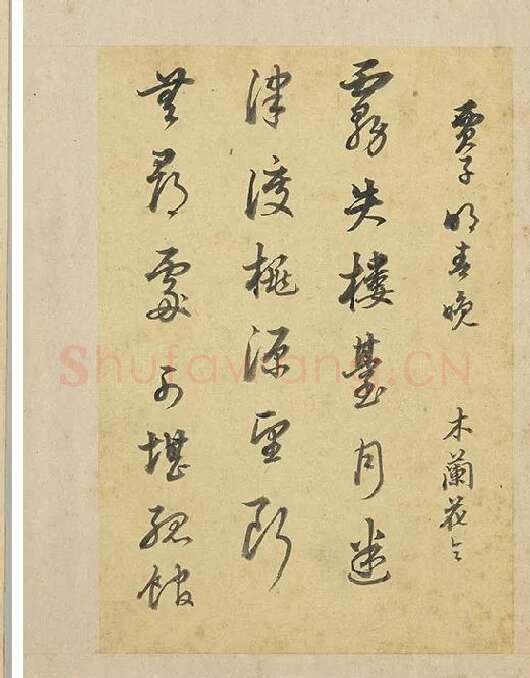 賈子明春晚 木蘭花令
霧失樓臺月迷
津渡桃源望斷
無尋處可堪孤館
Shufawang.CN